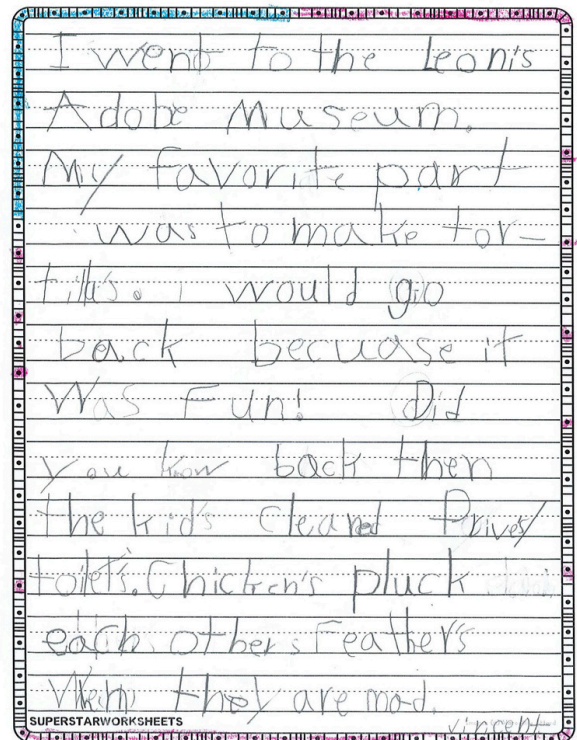 I went to the Leonis
Adobe Museum.
My favorite part
was to make tor-
tilla's. I would go
back becuase it
was Fun! Did
you know back then
the kid's cleaned Privey/
toilet's. Chicken's pluck
each other's Feather's
When they are mad.
SUPERSTARWORKSHEETS
vincent